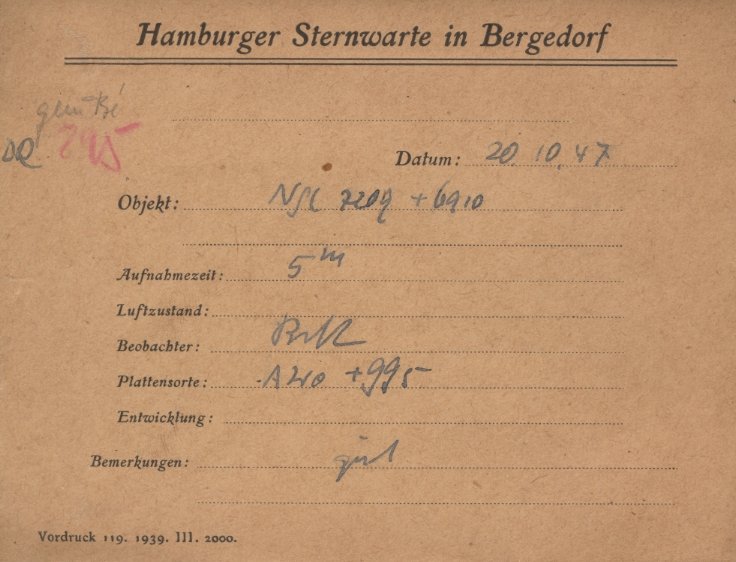 Hamburger Sternwarte in Bergedorf
295
Datum: 20.10.47
Objekt: NGC 7209 + 6910
Aufnahmezeit: 5 m
Luftzustand:
Beobachter:
Plattensorte: +995
Entwicklung:
Bemerkungen: gut
Vordruck 119. 1939. III. 2000.